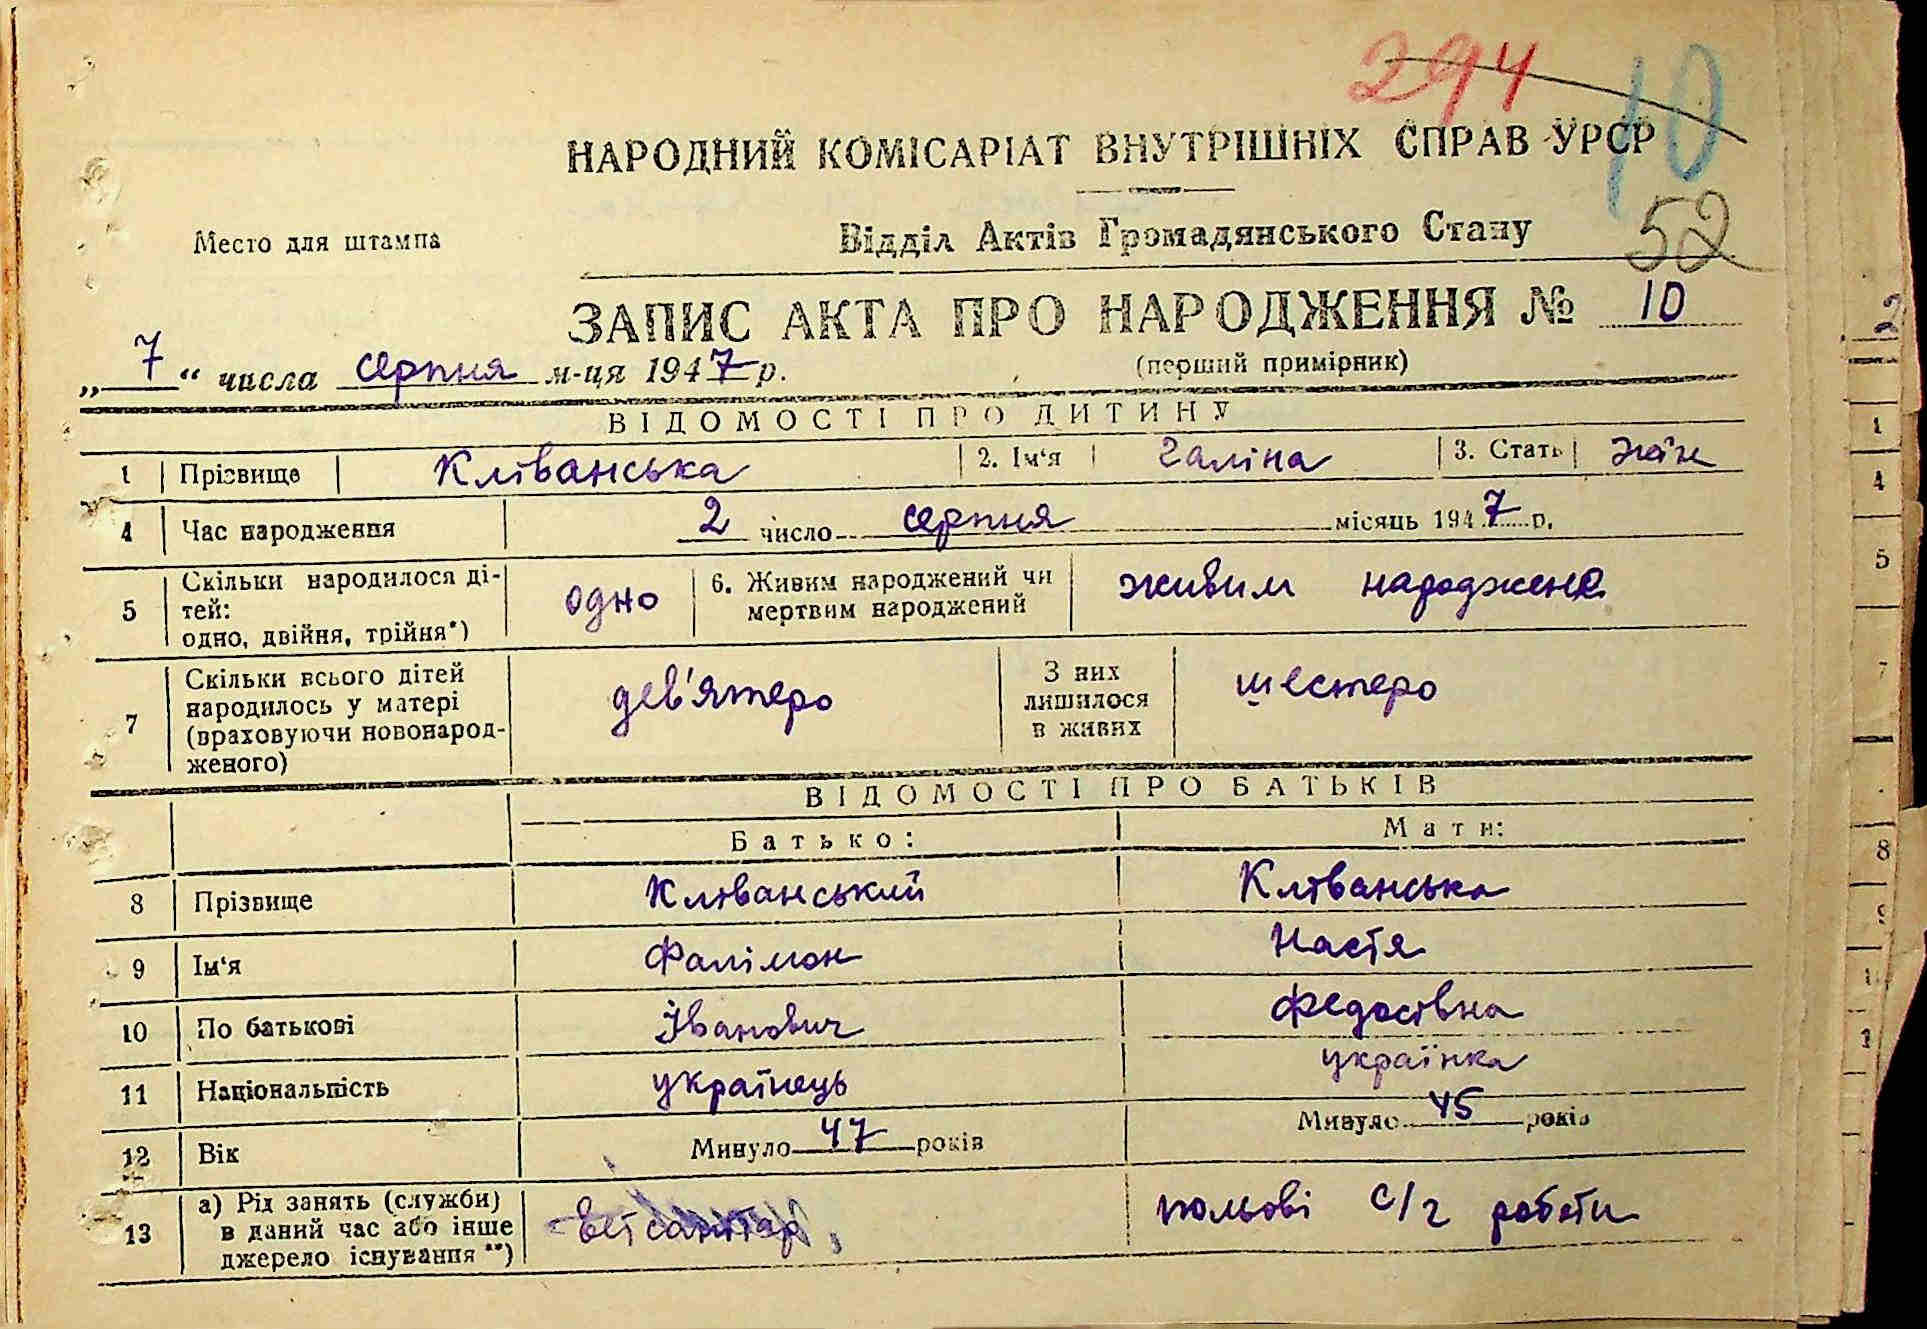 294 10
НАРОДНИЙ КОМІСАРІАТ ВНУТРІШНІХ СПРАВ УРСР
Место для штампа
Відділ Актів Громадянського Стану 52
ЗАПИС АКТА ПРО НАРОДЖЕННЯ № 10
„7“ числа серпня м-ця 1947 р.
(перший примірник)
ВІДОМОСТІ ПРО ДИТИНУ
1 Прізвище Кліванська 2. Ім‘я Галіна 3. Стать жін
4 Час народження 2 число серпня місяць 1947 р.
5 Скільки народилося ді-
тей:
одно, двійня, трійня*) одно
6. Живим народжений чи
мертвим народжений живим народжене
7 Скільки всього дітей
народилось у матері
(враховуючи новонарод-
женого) дев'ятеро
З них
лишилося
в живих шестеро
ВІДОМОСТІ ПРО БАТЬКІВ
Батько: Мати:
8 Прізвище Кліванський Кліванська
9 Ім‘я Фалімон Настя
10 По батькові Іванович Федосівна
11 Національність українець українка
12 Вік Минуло 47 років Минуло 45 років
13 а) Рід занять (служби)
в даний час або інше
джерело існування **) Ветсанітар, польові с/г роботи